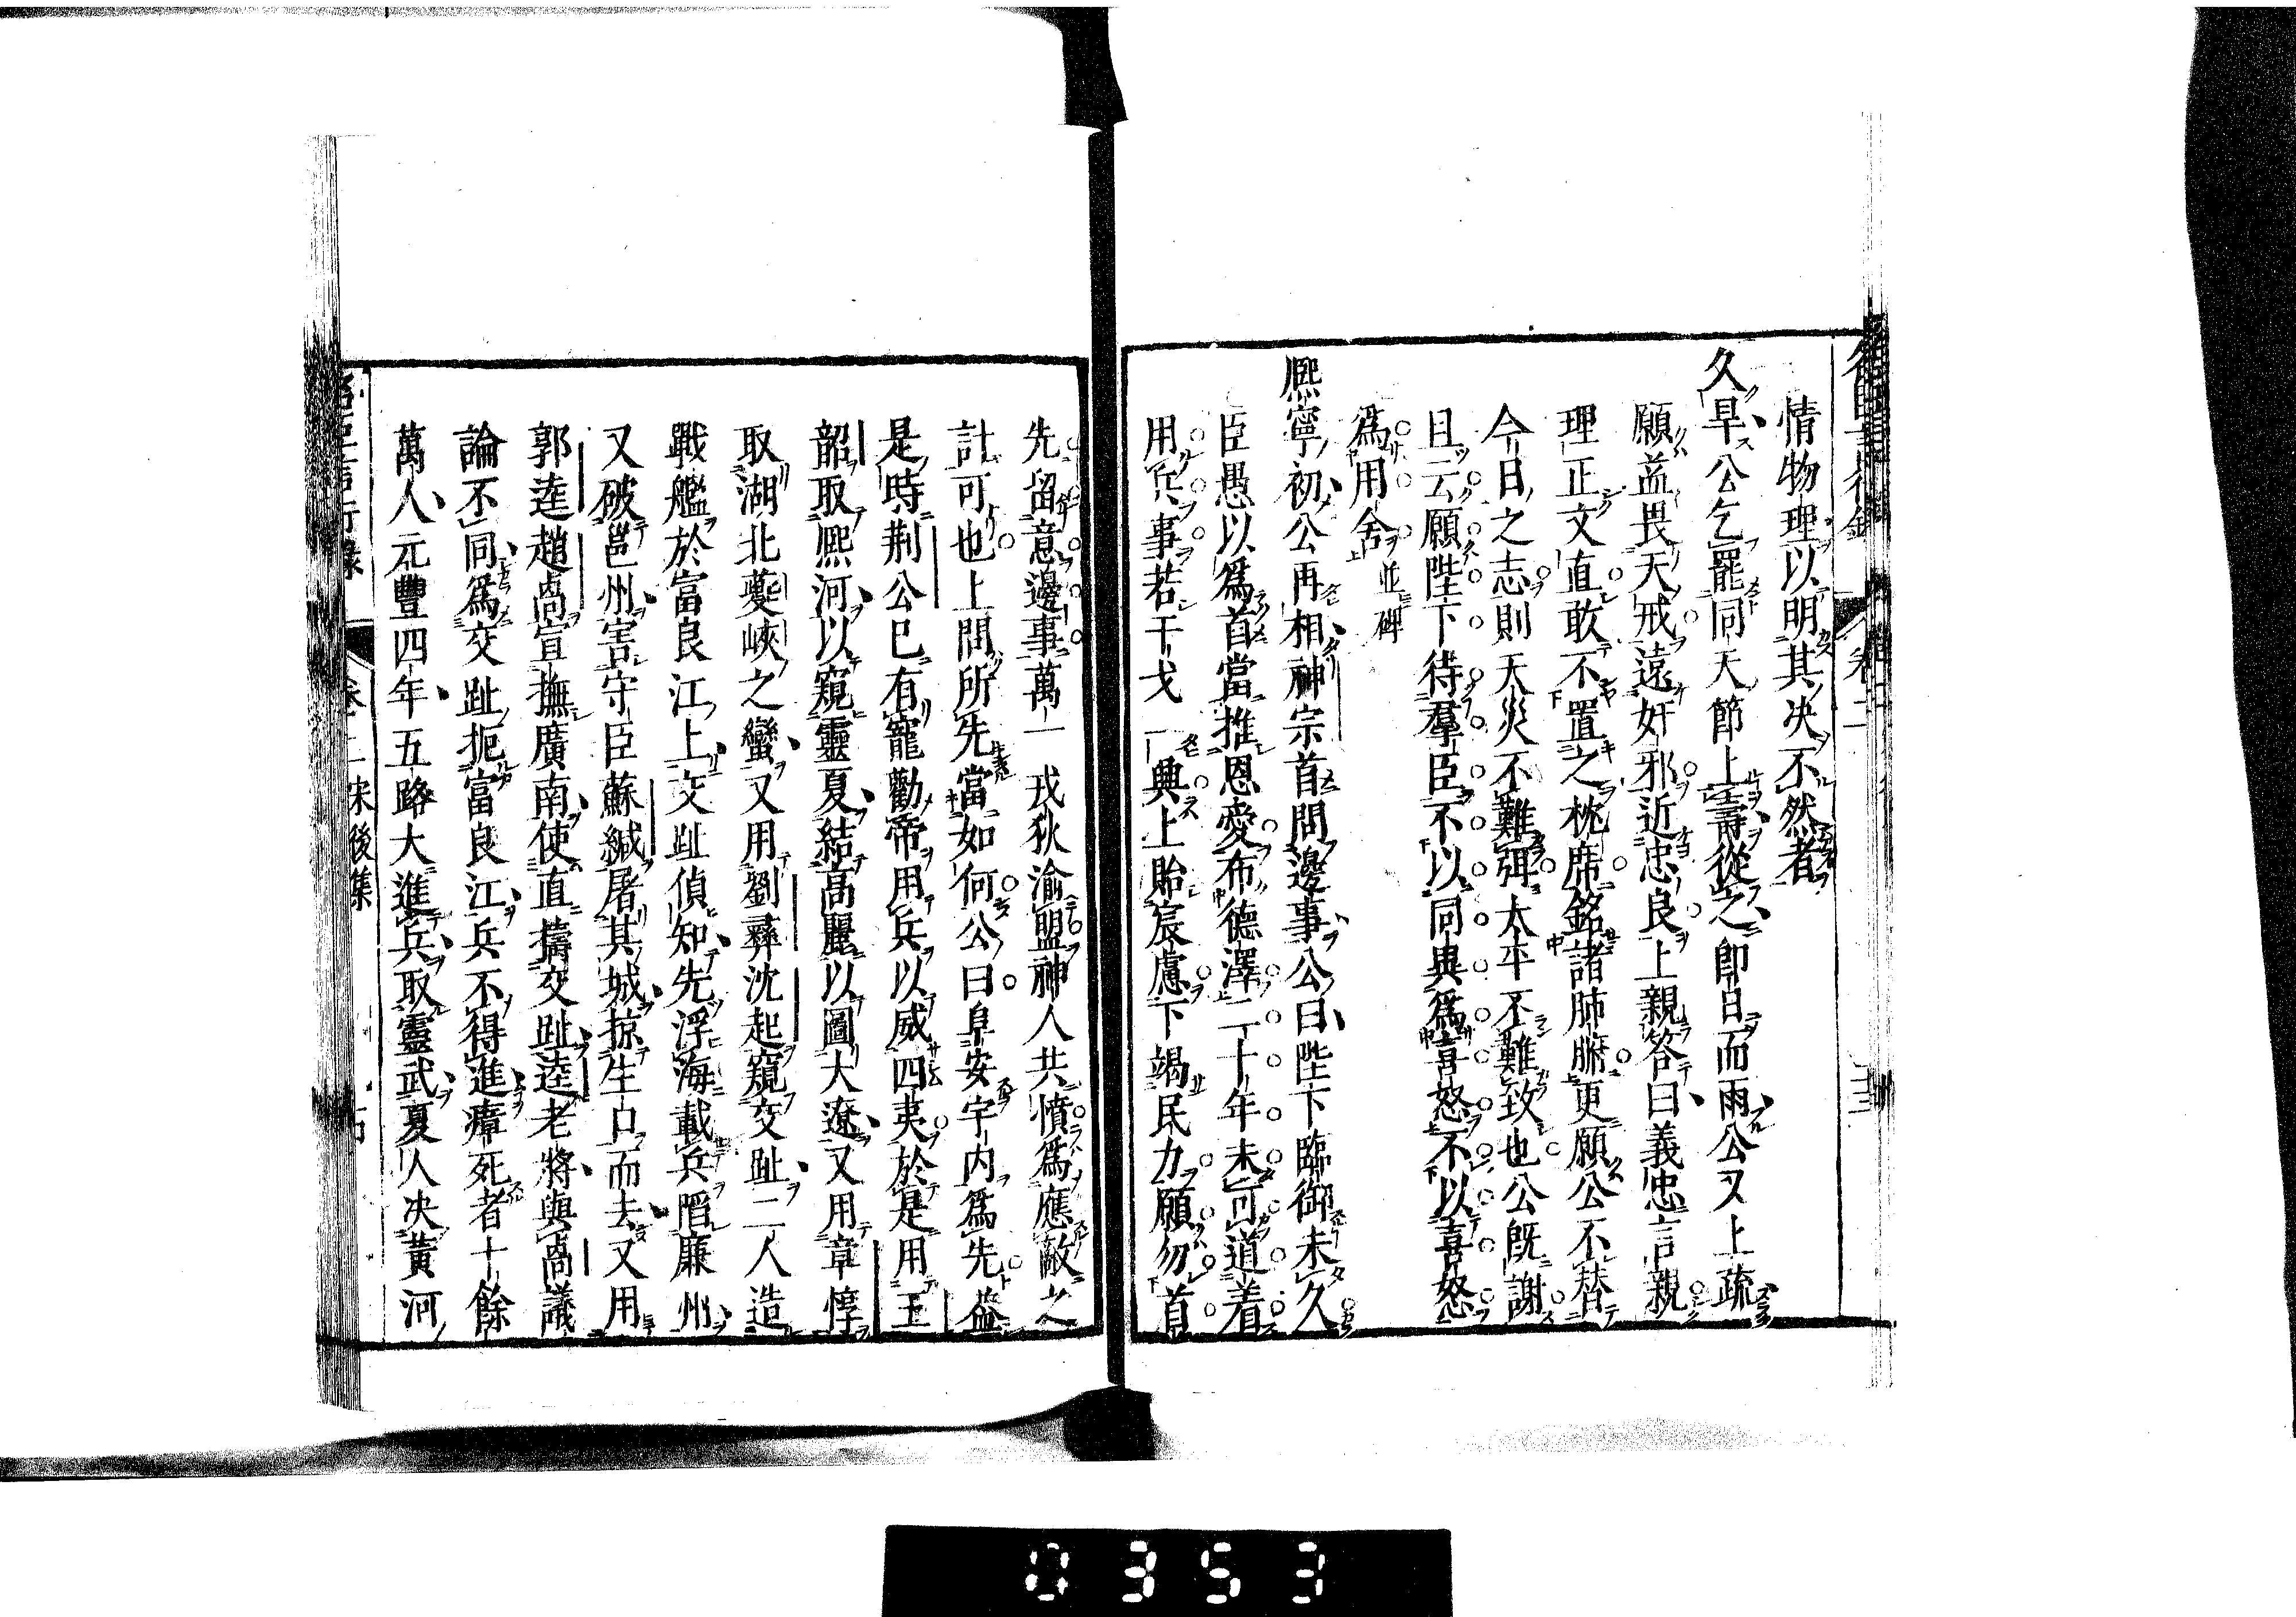 情物理以明其決不然者
久旱公乞罷同天節上壽從之即日而雨公又上疏
願益畏天戒遠奸邪近忠良上親答曰義忠言親
理正文直敢不置之枕席銘諸肺腑更願公不替
今日之志則天災不難弭太平不難致也公既謝
且云願陛下待羣臣不以同異爲喜怒不以喜怒
爲用舍並碑
熈寧初公再相神宗首問邊事公曰陛下臨御未久
臣愚以爲首當推恩愛布德澤二十年未可道着
用兵事若干戈一興上貽宸慮下竭民力願勿首
先留意邊事萬一戎狄渝盟神人共憤爲應敵之
計可也上問所先當如何公曰阜安宇内爲先葢
是時荆公已有寵勸帝用兵以威四夷於是用王
韶取熈河以窺靈夏結高麗以圖大遼又用章惇
取湖北夔峽之蠻又用劉彛沈起窺交趾二人造
戰艦於富良江上交趾偵知先浮海載兵陷廉州
又破邕州害守臣蘇緘屠其城掠生口而去又用
郭逵趙卨宣撫廣南使直擣交趾逵老將與卨議
論不同爲交趾扼富良江兵不得進瘴死者十餘
萬人元豐四年五路大進兵取靈武夏人決黃河
名臣言行錄 卷二 宋後集
0353